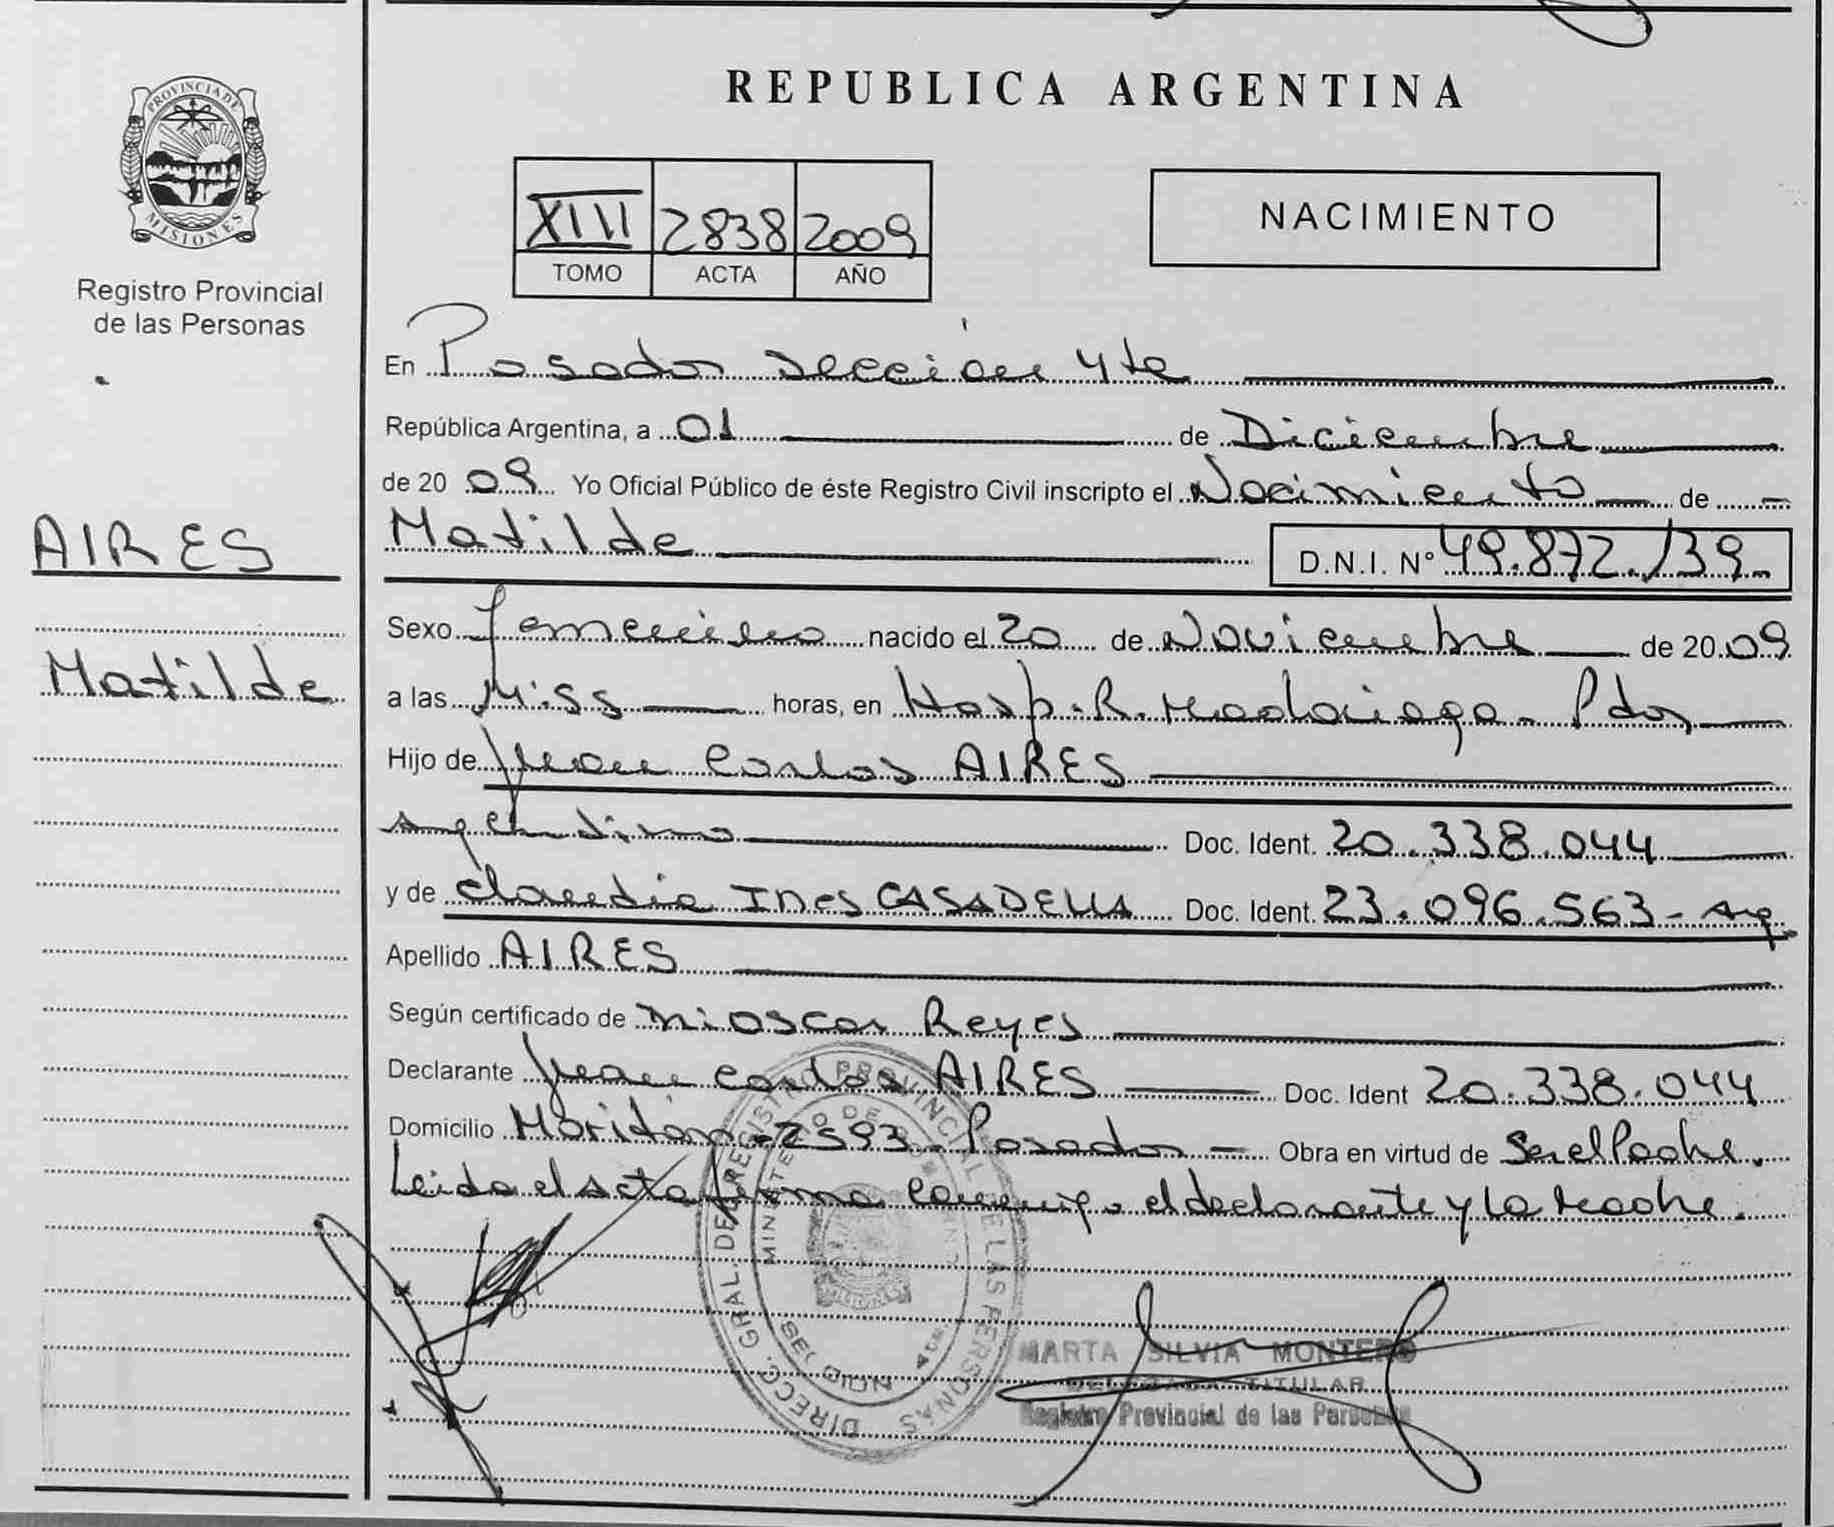 PROVINCIA DE
MISIONES
Registro Provincial
de las Personas
AIRES
Matilde
REPUBLICA ARGENTINA
XIII 2838 2009
TOMO ACTA AÑO
NACIMIENTO
En Posadas sección 4ta
República Argentina, a 01 de Diciembre
de 20 09 Yo Oficial Público de éste Registro Civil inscripto el Nacimiento de
Matilde D.N.I. Nº 49.872.139
Sexo femenino nacido el 20 de Noviembre de 20 09
a las horas, en Hosp. R. Madariaga - Pdas
Hijo de Juan Carlos AIRES
argentino Doc. Ident. 20.338.044
y de Claudia INes CASADELLA Doc. Ident. 23.096.563 - Arg.
Apellido AIRES
Según certificado de Oscar Reyes
Declarante Juan Carlos AIRES Doc. Ident 20.338.044
Domicilio 2593 - Posadas Obra en virtud de Ser el Padre.
Leida el acta firma conmigo el declarante y la madre.
DIRECC. GRAL. DEL REGISTRO PROVINCIAL DE LAS PERSONAS
MINISTERIO DE
MARTA SILVIA MONTERO
DELEGADA TITULAR
Registro Provincial de las Personas